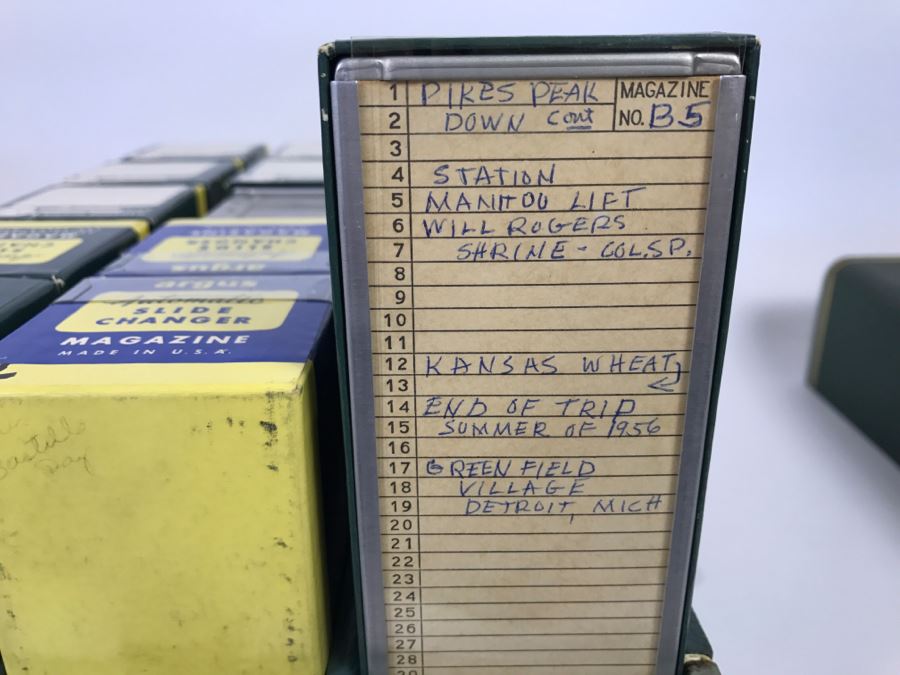 1 PIKES PEAK MAGAZINE
2 DOWN Cont NO. B5
3
4 STATION
5 MANITOU LIFT
6 WILL ROGERS
7 SHRINE - COL.SP.
8
9
10
11
12 KANSAS WHEAT
13
14 END OF TRIP
15 SUMMER OF 1956
16
17 GREENFIELD
18 VILLAGE
19 DETROIT, MICH
20
21
22
23
24
25
26
27
28
29
argus
Automatic
SLIDE
CHANGER
MAGAZINE
MADE IN U.S.A.
Bastille
Day